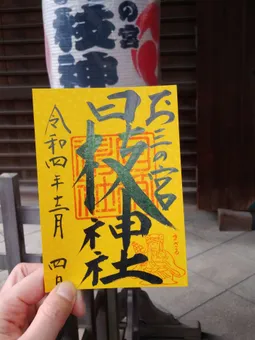 の宮
枝神
お三の宮
日枝神社
令和四年十二月 四日